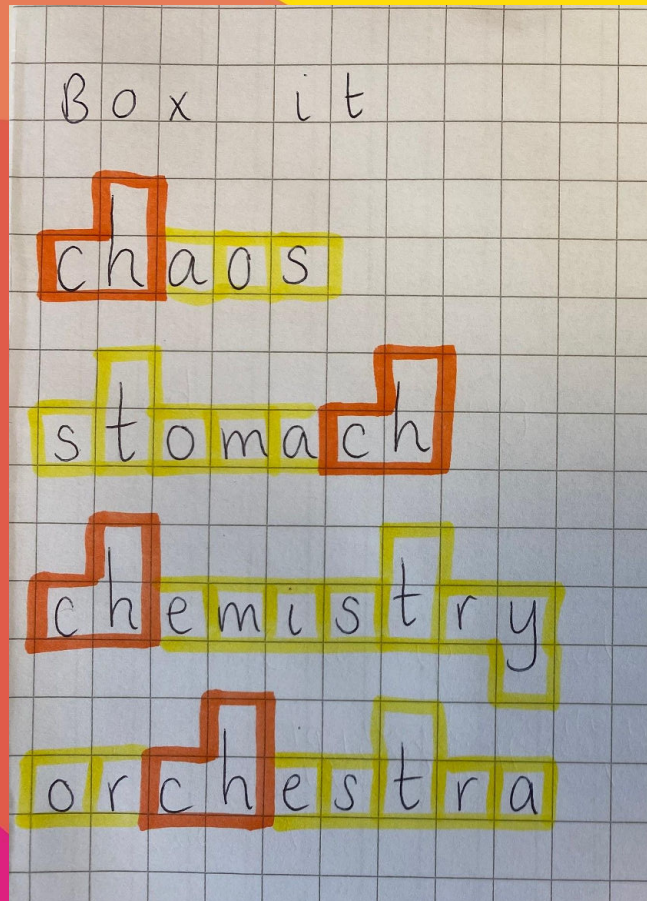 Box it
chaos
stomach
chemistry
orchestra